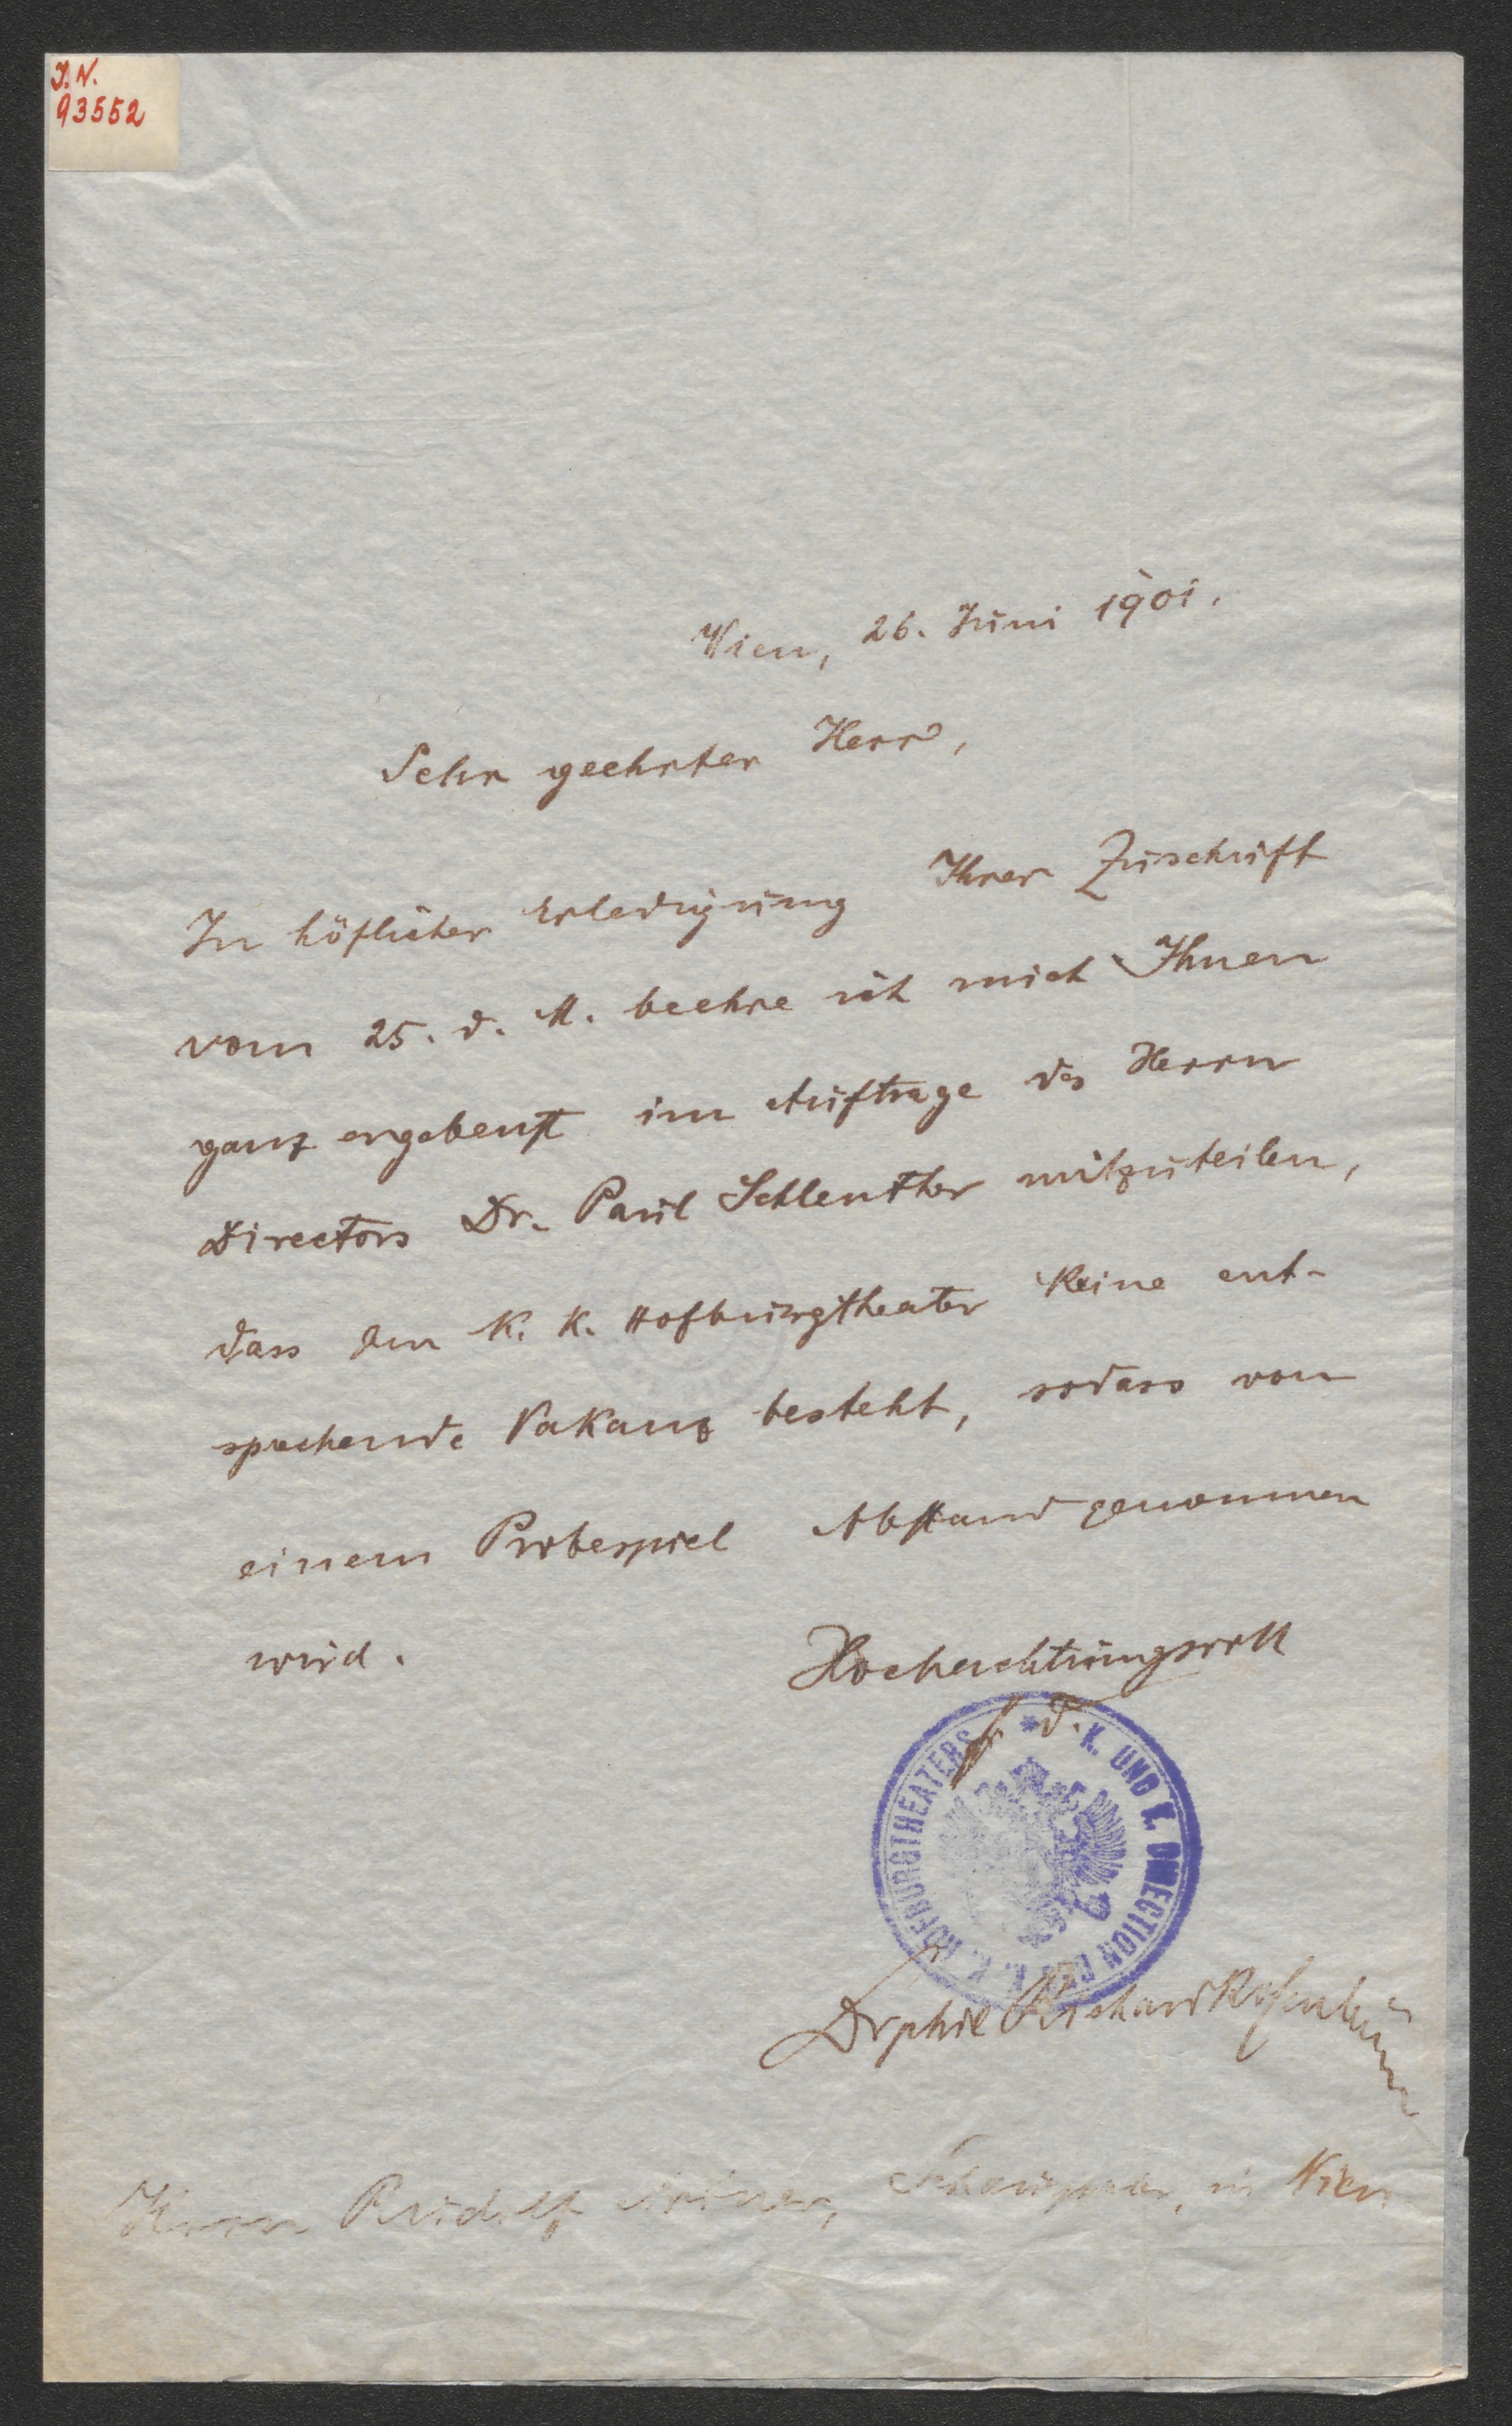 J.N.
93552
Wien, 26. Juni 1901.
Sehr geehrter Herr,
In höflicher Erledigung Ihrer Zuschrift
vom 25. d. M. beehre ich mich Ihnen
ganz ergebenst im Auftrage des Herrn
Directors Dr. Paul Schlenther mitzuteilen,
dass am K. K. Hofburgtheater keine ent-
sprechende Vakanz besteht, sodass von
einem Probespiel Abstand genommen
wird.
Hochachtungsvoll
f. d.
K. UND K. DIRECTION DES K. K. HOFBURGTHEATERS
Dr phil Richard Rosenbaum
Herrn Rudolf Schauspieler, in Wien